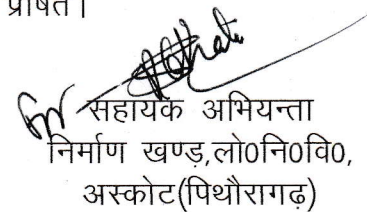 प्रेषित।
सहायक अभियन्ता
निर्माण खण्ड,लो0नि0वि0,
अस्कोट(पिथौरागढ़)